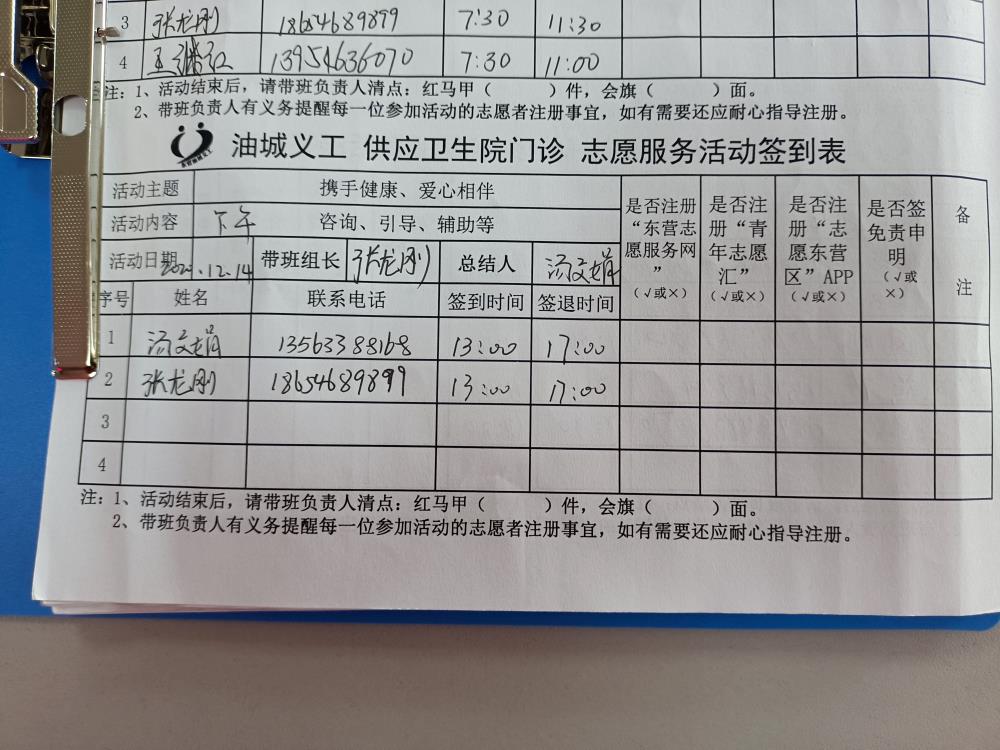 3 张龙刚 18654689899 7:30 11:30
4 王 红 13954636070 7:30 11:00
注：1、活动结束后，请带班负责人清点：红马甲（ ）件，会旗（ ）面。
2、带班负责人有义务提醒每一位参加活动的志愿者注册事宜，如有需要还应耐心指导注册。
油城义工 供应卫生院门诊 志愿服务活动签到表
活动主题 携手健康、爱心相伴
活动内容 下午 咨询、引导、辅助等
活动日期 12.14 带班组长 张龙刚 总结人 汤文娟
是否注册“东营志愿服务网”（√或×）
是否注册“青年志愿汇”（√或×）
是否注册“志愿东营区”APP（√或×）
是否签免责申明（√或×）
备注
序号 姓名 联系电话 签到时间 签退时间
1 汤文娟 13563388168 13:00 17:00
2 张龙刚 18654689899 13:00 17:00
3
4
注：1、活动结束后，请带班负责人清点：红马甲（ ）件，会旗（ ）面。
2、带班负责人有义务提醒每一位参加活动的志愿者注册事宜，如有需要还应耐心指导注册。